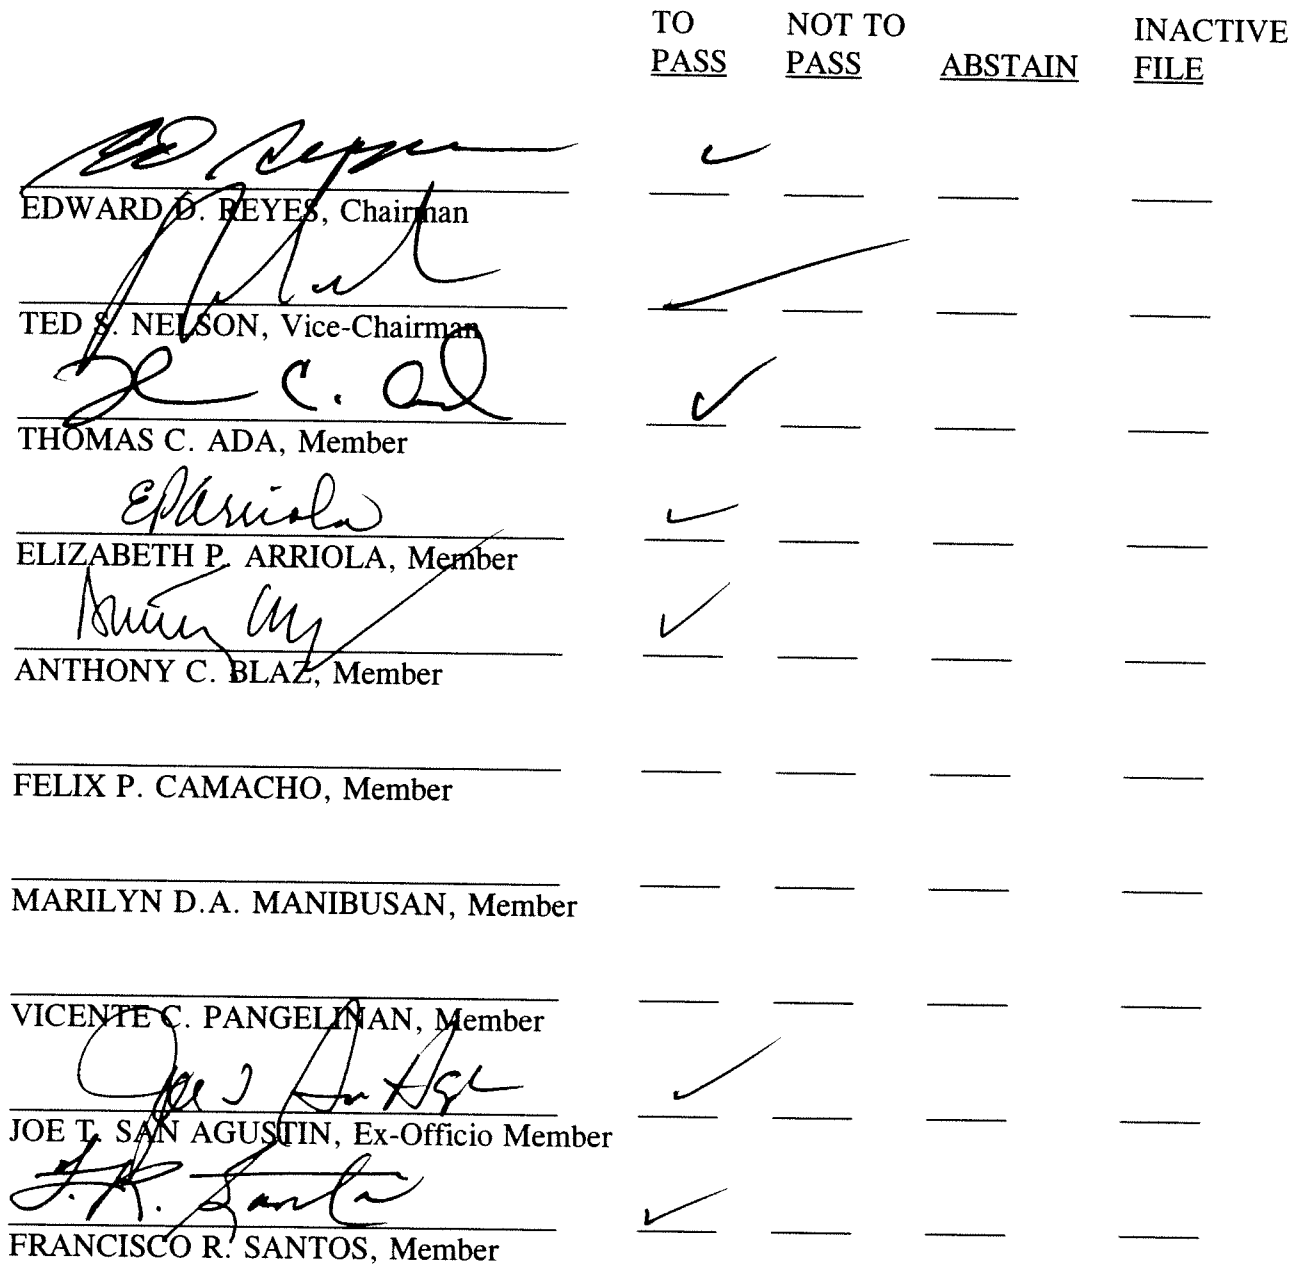 TO NOT TO INACTIVE
PASS PASS ABSTAIN FILE
EDWARD D. REYES, Chairman
TED S. NELSON, Vice-Chairman
THOMAS C. ADA, Member
EPArriola
ELIZABETH P. ARRIOLA, Member
ANTHONY C. BLAZ, Member
FELIX P. CAMACHO, Member
MARILYN D.A. MANIBUSAN, Member
VICENTE C. PANGELINAN, Member
JOE T. SAN AGUSTIN, Ex-Officio Member
F. R. Santos
FRANCISCO R. SANTOS, Member